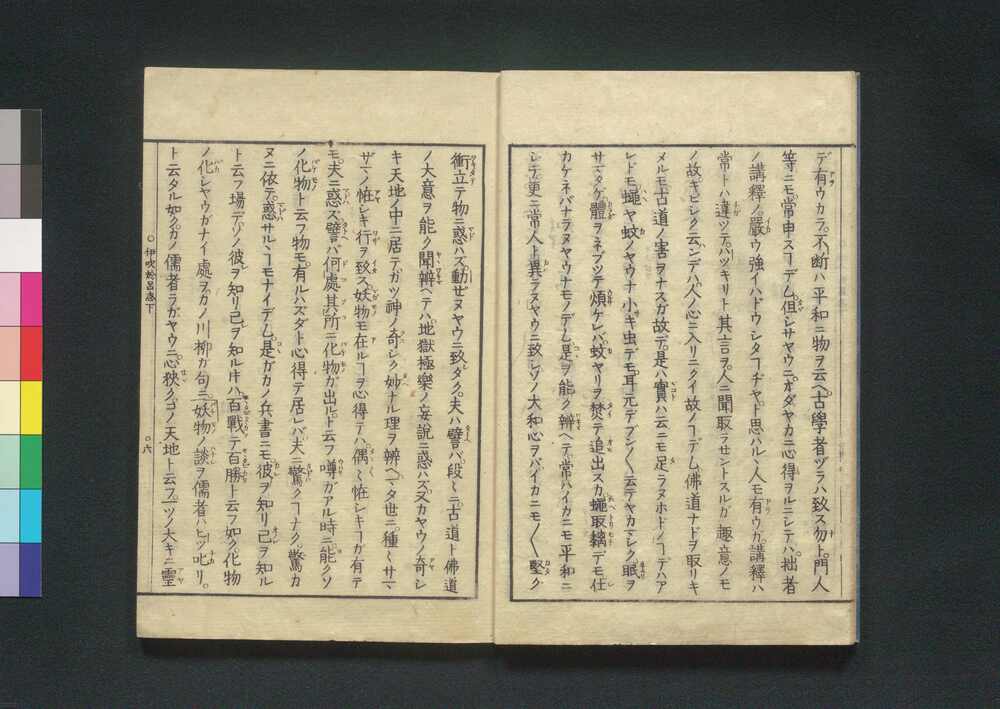 デ有ウカラ。不断ハ平和ニ物ヲ云ヘ。古學者ヅラハ致ス勿ト。門人
等ニモ常申スコデム。但シサヤウニ。オダヤカニ心得ヲルニシテハ。拙者
ノ講釋ノ。嚴ウ強イハドウシタコヂヤト思ハルヽ人モ有ウガ。講釋ハ
常トハ違ツテ。ハツキリト其言ヲ。人ニ聞取ラセントスルガ趣意ノモ
ノ故。キビシク云ンデハ人ノ心ニ入リニクイ故ノコデム。佛道ナドヲ取リキ
メルモ古道ノ害ヲナスガ故デ。是ハ實ハ云ニモ足ラヌホドノコデハア
レドモ。蠅ヤ蚊ノヤウナ小キ虫デモ。耳元デブン〳〵云テヤカマシク。眠ヲ
サマタゲ體ヲネブツテ煩ケレバ。蚊ヤリヲ焚テ追出スカ。蠅取黐デモ仕
カケネバナラヌヤウナモノデム。是ヲ能ク辨ヘテ。常ハイカニモ平和ニ
シテ。更ニ常人ト異ラヌヤウニ致シ。ソノ大和心ヲバイカニモ〳〵堅ク
衝立テ物ニ惑ハズ動ゼヌヤウニ致タク。夫ハ譬バ段々ニ。古道ト佛道
ノ大意ヲ能ク聞辨ヘテハ。地獄極樂ノ妄説ニ惑ハズ。又カヤウノ奇シ
キ天地ノ中ニ居テ。カツ神ノ奇シク妙ナル理ヲ辨ヘ。マタ世ニ。種々サマ
ザマノ怪シキ行ヲ致ス妖物モ在ルコヲ心得テハ。偶々怪シキコガ有テ
モ。夫ニ惑ズ。譬バ何處其所ニ化物ガ出ル。ト云フ噂ガアル時ニ。能クソ
ノ化物ト云フ物モ。有ルハズダト心得テ居レバ。夫ニ驚クコナク。驚カ
ヌニ依テ。惑サルヽコモナイデム。是ガカノ兵書ニモ。彼ヲ知リ己ヲ知ル
ト云フ場デ。ソノ彼ヲ知リ己ヲ知ル片ハ。百戰テ百勝ト云フ如ク。化物
ノ化シヤウガナイ處ヲ。カノ川柳ガ句ニ。妖物ノ談ヲ儒者ハヒツ叱リ。
ト云タル如ク。カノ儒者ラガヤウニ。心狹クコノ天地ト云フ一ツノ大キニ靈
○伊吹於呂志下
○六